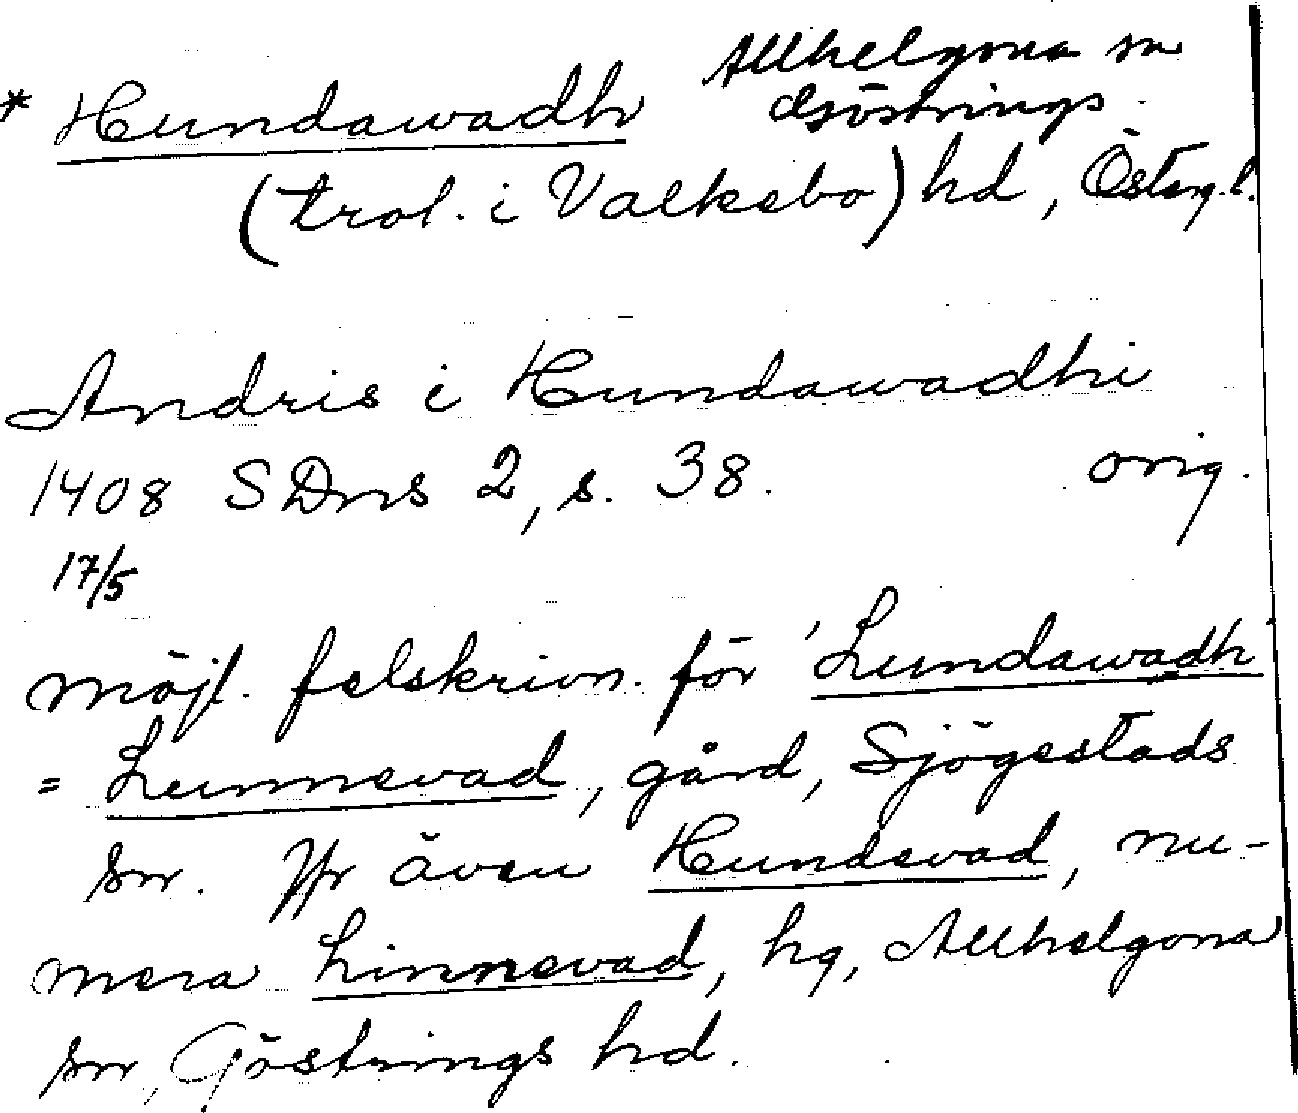 Allhelgona sn
* Hundawadh Göstrings
(trol. i Valkebo) hd, Östergl.
Andris i Hundawadhi
1408 SDns 2, s. 38. orig.
17/5
möjl. felskrivn. för 'Lundawadh'
= Lunnevad, gård, Sjögestads
sn. Jfr även Hundevad, nu-
mera Linnevad, hg, Allhelgona
sn, Göstrings hd.